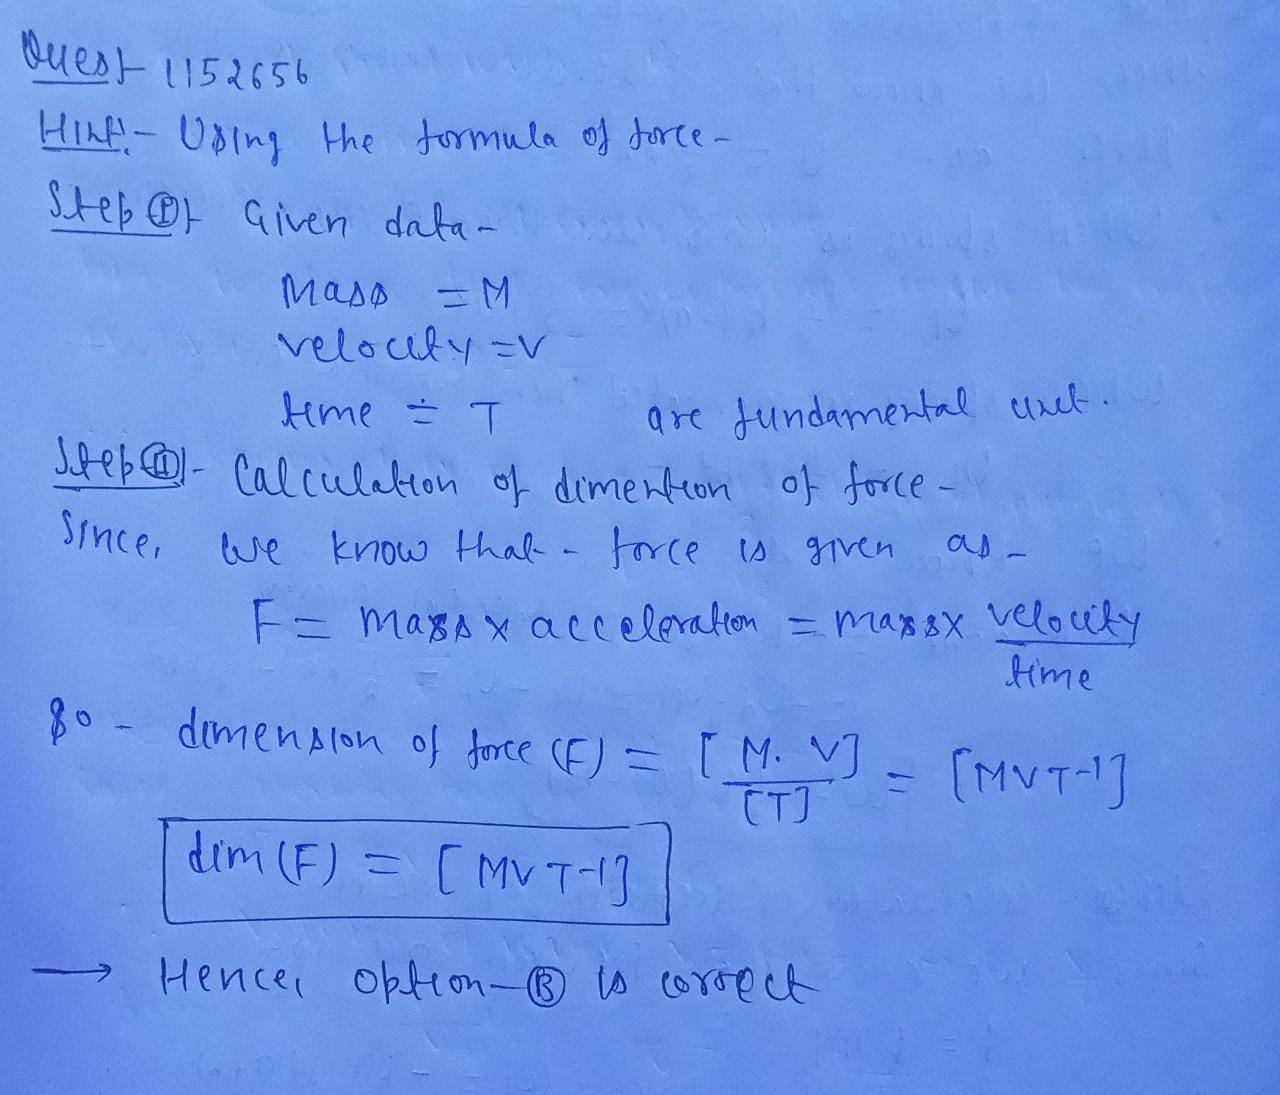 Quest 1152656
Hint:- Using the formula of force-
Step (I)- Given data-
Mass = M
velocity = V
time = T are fundamental unit.
Step (II)- Calculation of dimention of force-
Since, we know that - force is given as-
F = mass x acceleration = mass x velocity / time
So - dimension of force (F) = [M. V] / [T] = [MVT-1]
dim (F) = [MVT-1]
→ Hence, option-(B) is correct